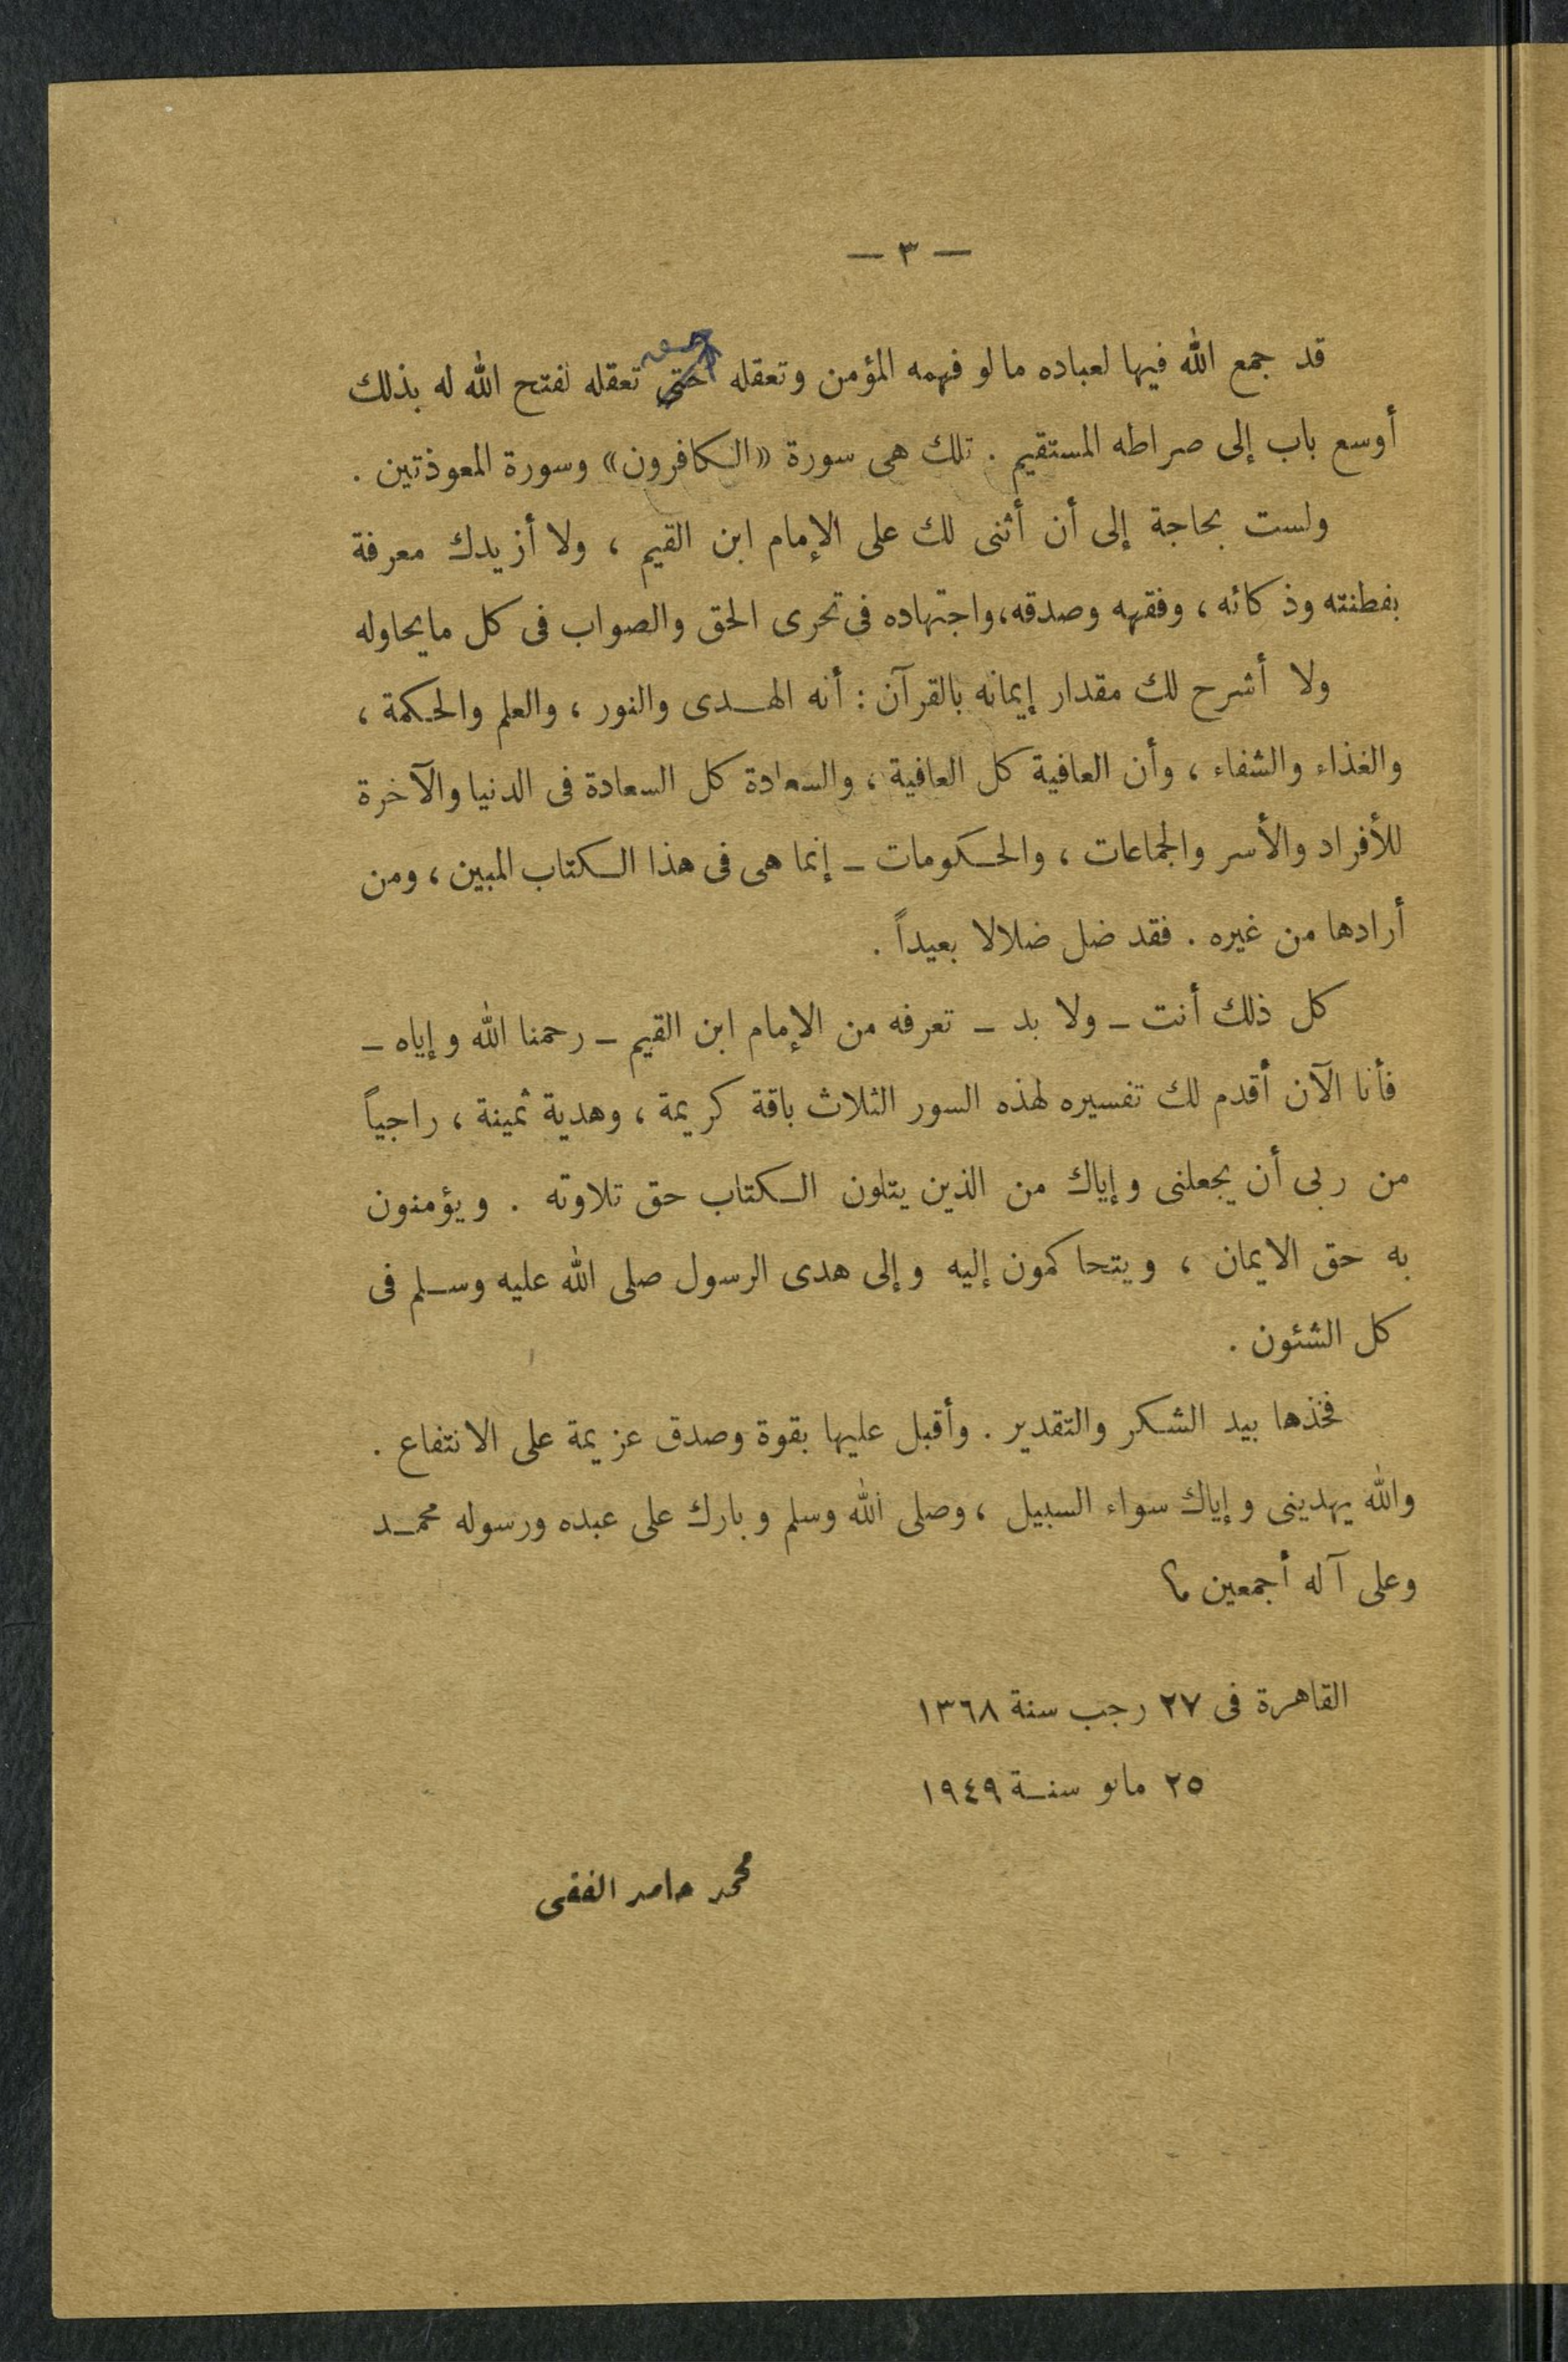 — ٣ —
قد جمع الله فيها لعباده مالو فهمه المؤمن وتعقله حتى تعقله لفتح الله له بذلك
أوسع باب إلى صراطه المستقيم . تلك هى سورة «الكافرون» وسورة المعوذتين .
ولست بحاجة إلى أن أثنى لك على الإمام ابن القيم ، ولا أزيدك معرفة
بفطنته وذكائه ، وفقهه وصدقه، واجتهاده فى تحرى الحق والصواب فى كل مايحاوله
ولا أشرح لك مقدار إيمانه بالقرآن : أنه الهدى والنور ، والعلم والحكمة ،
والغذاء والشفاء ، وأن العافية كل العافية ، والسعادة كل السعادة فى الدنيا والآخرة
للأفراد والأسر والجماعات ، والحكومات ـ إنما هى فى هذا الكتاب المبين ، ومن
أرادها من غيره . فقد ضل ضلالا بعيداً .
كل ذلك أنت ـ ولا بد ـ تعرفه من الإمام ابن القيم ـ رحمنا الله وإياه ـ
فأنا الآن أقدم لك تفسيره لهذه السور الثلاث باقة كريمة ، وهدية ثمينة ، راجياً
من ربى أن يجعلنى وإياك من الذين يتلون الكتاب حق تلاوته . ويؤمنون
به حق الايمان ، ويتحاكمون إليه وإلى هدى الرسول صلى الله عليه وسلم فى
كل الشئون .
فخذها بيد الشكر والتقدير . وأقبل عليها بقوة وصدق عزيمة على الانتفاع .
والله يهدينى وإياك سواء السبيل ، وصلى الله وسلم وبارك على عبده ورسوله محمد
وعلى آله أجمعين ؟
القاهرة فى ٢٧ رجب سنة ١٣٦٨
٢٥ مايو سنة ١٩٤٩
محمد حامد الفقى